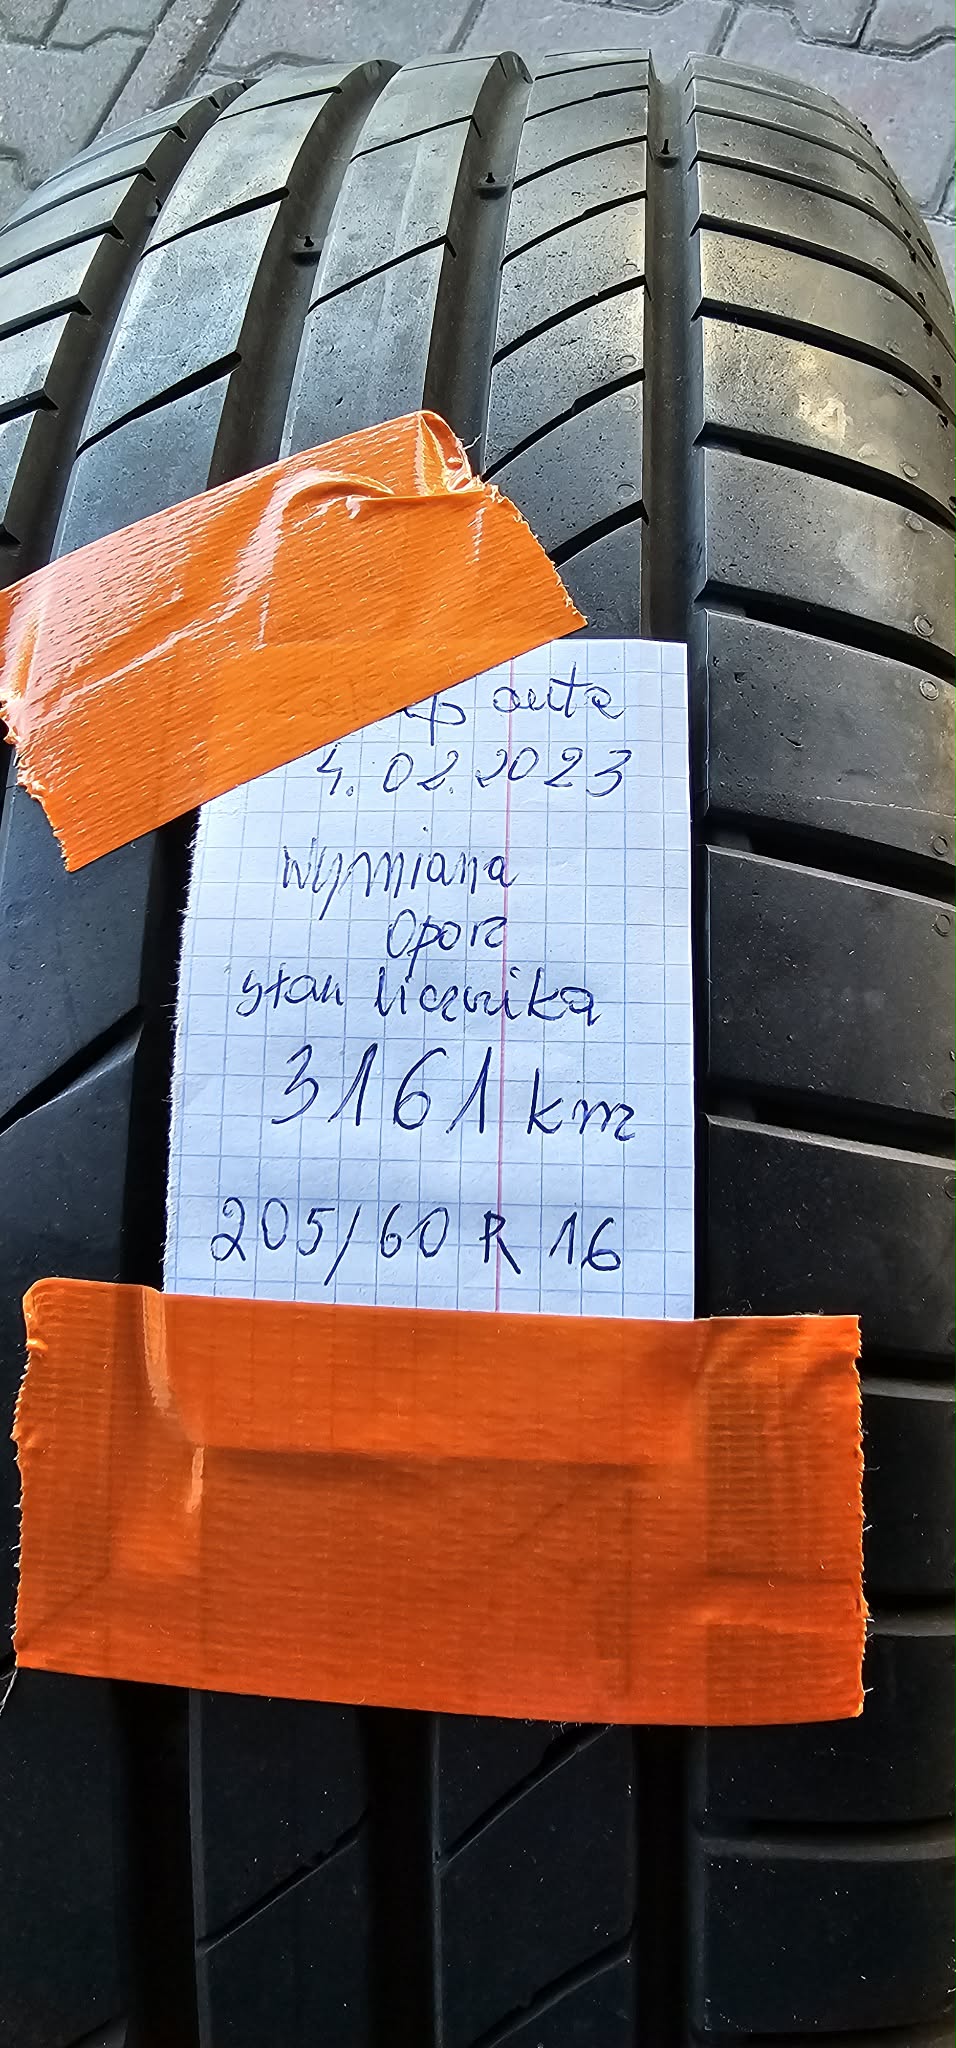 auta
4.02.2023
Wymiana
Opon
stan licznika
3161 km
205/60 R 16